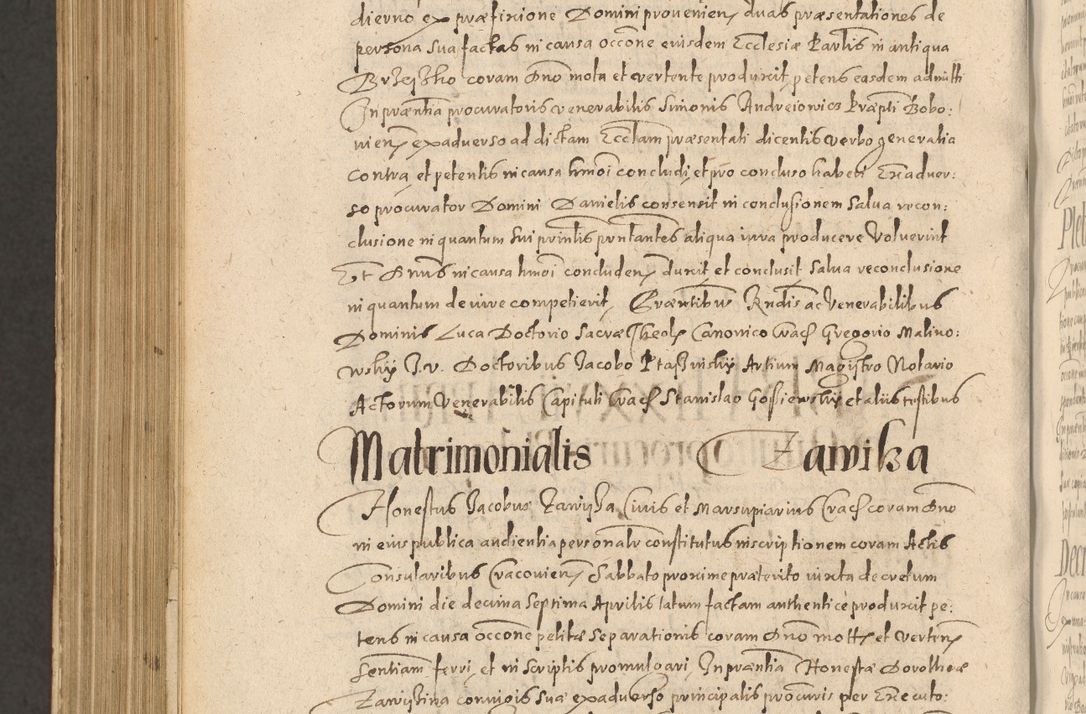 dierno ex praefixione Domini provenien duas praesentationes de
persona sua factas in causa occone eiusdem Ecclesiae Parlis in antiqua
Brzesko coram Dno mota et vertente produxit petens easdem admitti
In prntia procuratoris venerabilis Simonis Andreiowicz Praepti Bobo:
vien ex adverso ad dictam Ecctam praesentati dicentis verbo generalia
contra et petentis in causa hmoi concludi, et pro concluso haberi Ex adver:
so procurator Domini Danielis consensit in conclusionem salva recon:
clusione in quantum sui prinlis prntantes aliqua iura producere voluerint
Et Dnus in causa hmoi concluden duxit et conclusit salva reconclusione
in quantum de iure competierit, Praentibus Rndis ac Venerabilibus
Dominis Luca Doctorio Sacrae Theol Canonico Crac Gregorio Malino:
wskij I.v. Doctoribus Jacobo Ptasinskij Artium Magistro Notario
Actorum Venerabilis Capituli Crac Stanislao Gossiewskij et aliis testibus
Matrimonialis Zawiska
Honestus Jacobus Zawiska Civis et Marsupiarius Crac coram Dno
in eius publica audientia personalr constitutus inscriptionem coram Actis
Consularibus Cracovien Sabbato proxime praeterito iuxta decretum
Domini die decima septima Aprilis latum factam authentice produxit pe:
tens in causa occone petitae separationis coram Dno mott et verten
sentiam ferri, et in scriptis promulgari, In praentia Honestae Dorotheae
Zawistina coniugis suae ex adverso principalis procuris per Executo: